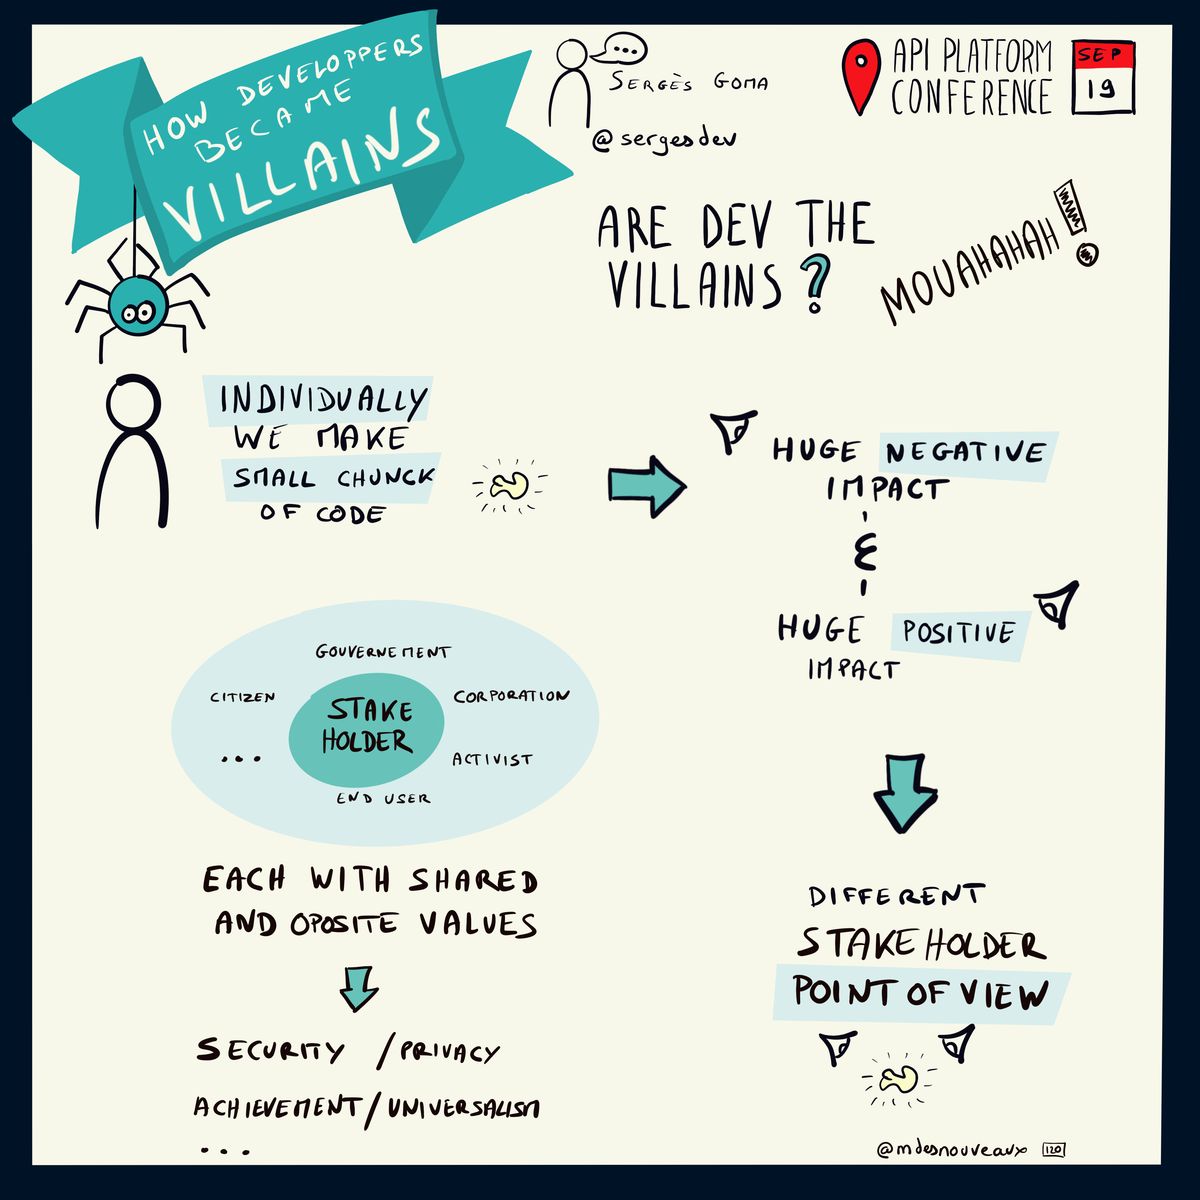 HOW DEVELOPPERS
BECAME
VILLAINS
...
SERGÈS GOMA
@sergesdev
API PLATFORM
CONFERENCE
SEP
19
ARE DEV THE
VILLAINS ?
MOUAHAHAH !
INDIVIDUALLY
WE MAKE
SMALL CHUNCK
OF CODE
HUGE NEGATIVE
IMPACT
&
HUGE POSITIVE
IMPACT
GOUVERNEMENT
CITIZEN
CORPORATION
STAKE
HOLDER
...
ACTIVIST
END USER
EACH WITH SHARED
AND OPOSITE VALUES
SECURITY / PRIVACY
ACHIEVEMENT / UNIVERSALISM
...
DIFFERENT
STAKE HOLDER
POINT OF VIEW
@mdesnouveaux 120